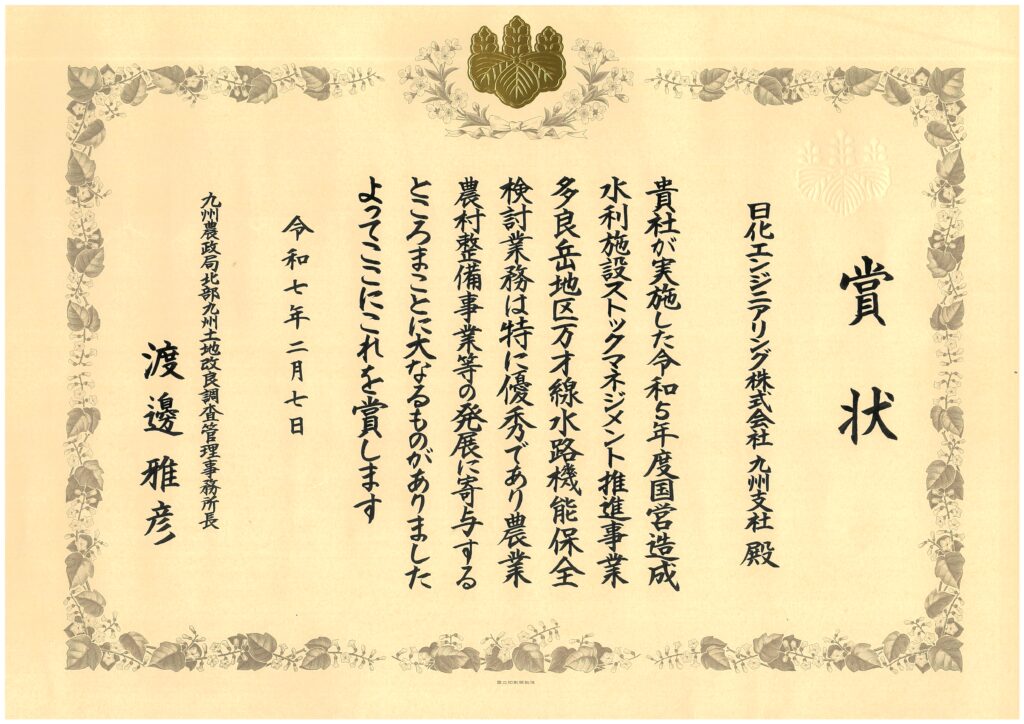 賞状
日化エンジニアリング株式会社 九州支社 殿
貴社が実施した令和5年度国営造成
水利施設ストックマネジメント推進事業
多良岳地区万才線水路機能保全
検討業務は特に優秀であり農業
農村整備事業等の発展に寄与する
ところまことに大なるものがありました
よってここにこれを賞します
令和七年二月七日
九州農政局北部九州土地改良調査管理事務所長
渡邊雅彦